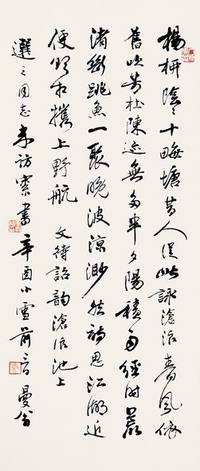 楊柳陰陰十畮塘昔人從此詠滄浪春風依
舊吹芳杜陳迹無多半夕陽積雨經時荒
渚斷跳魚一聚晚波涼渺然詩思江湖近
便欲相攜上野航 文待詔韵滄浪池上
選之同志來訪索書辛酉小雪前 曼翁